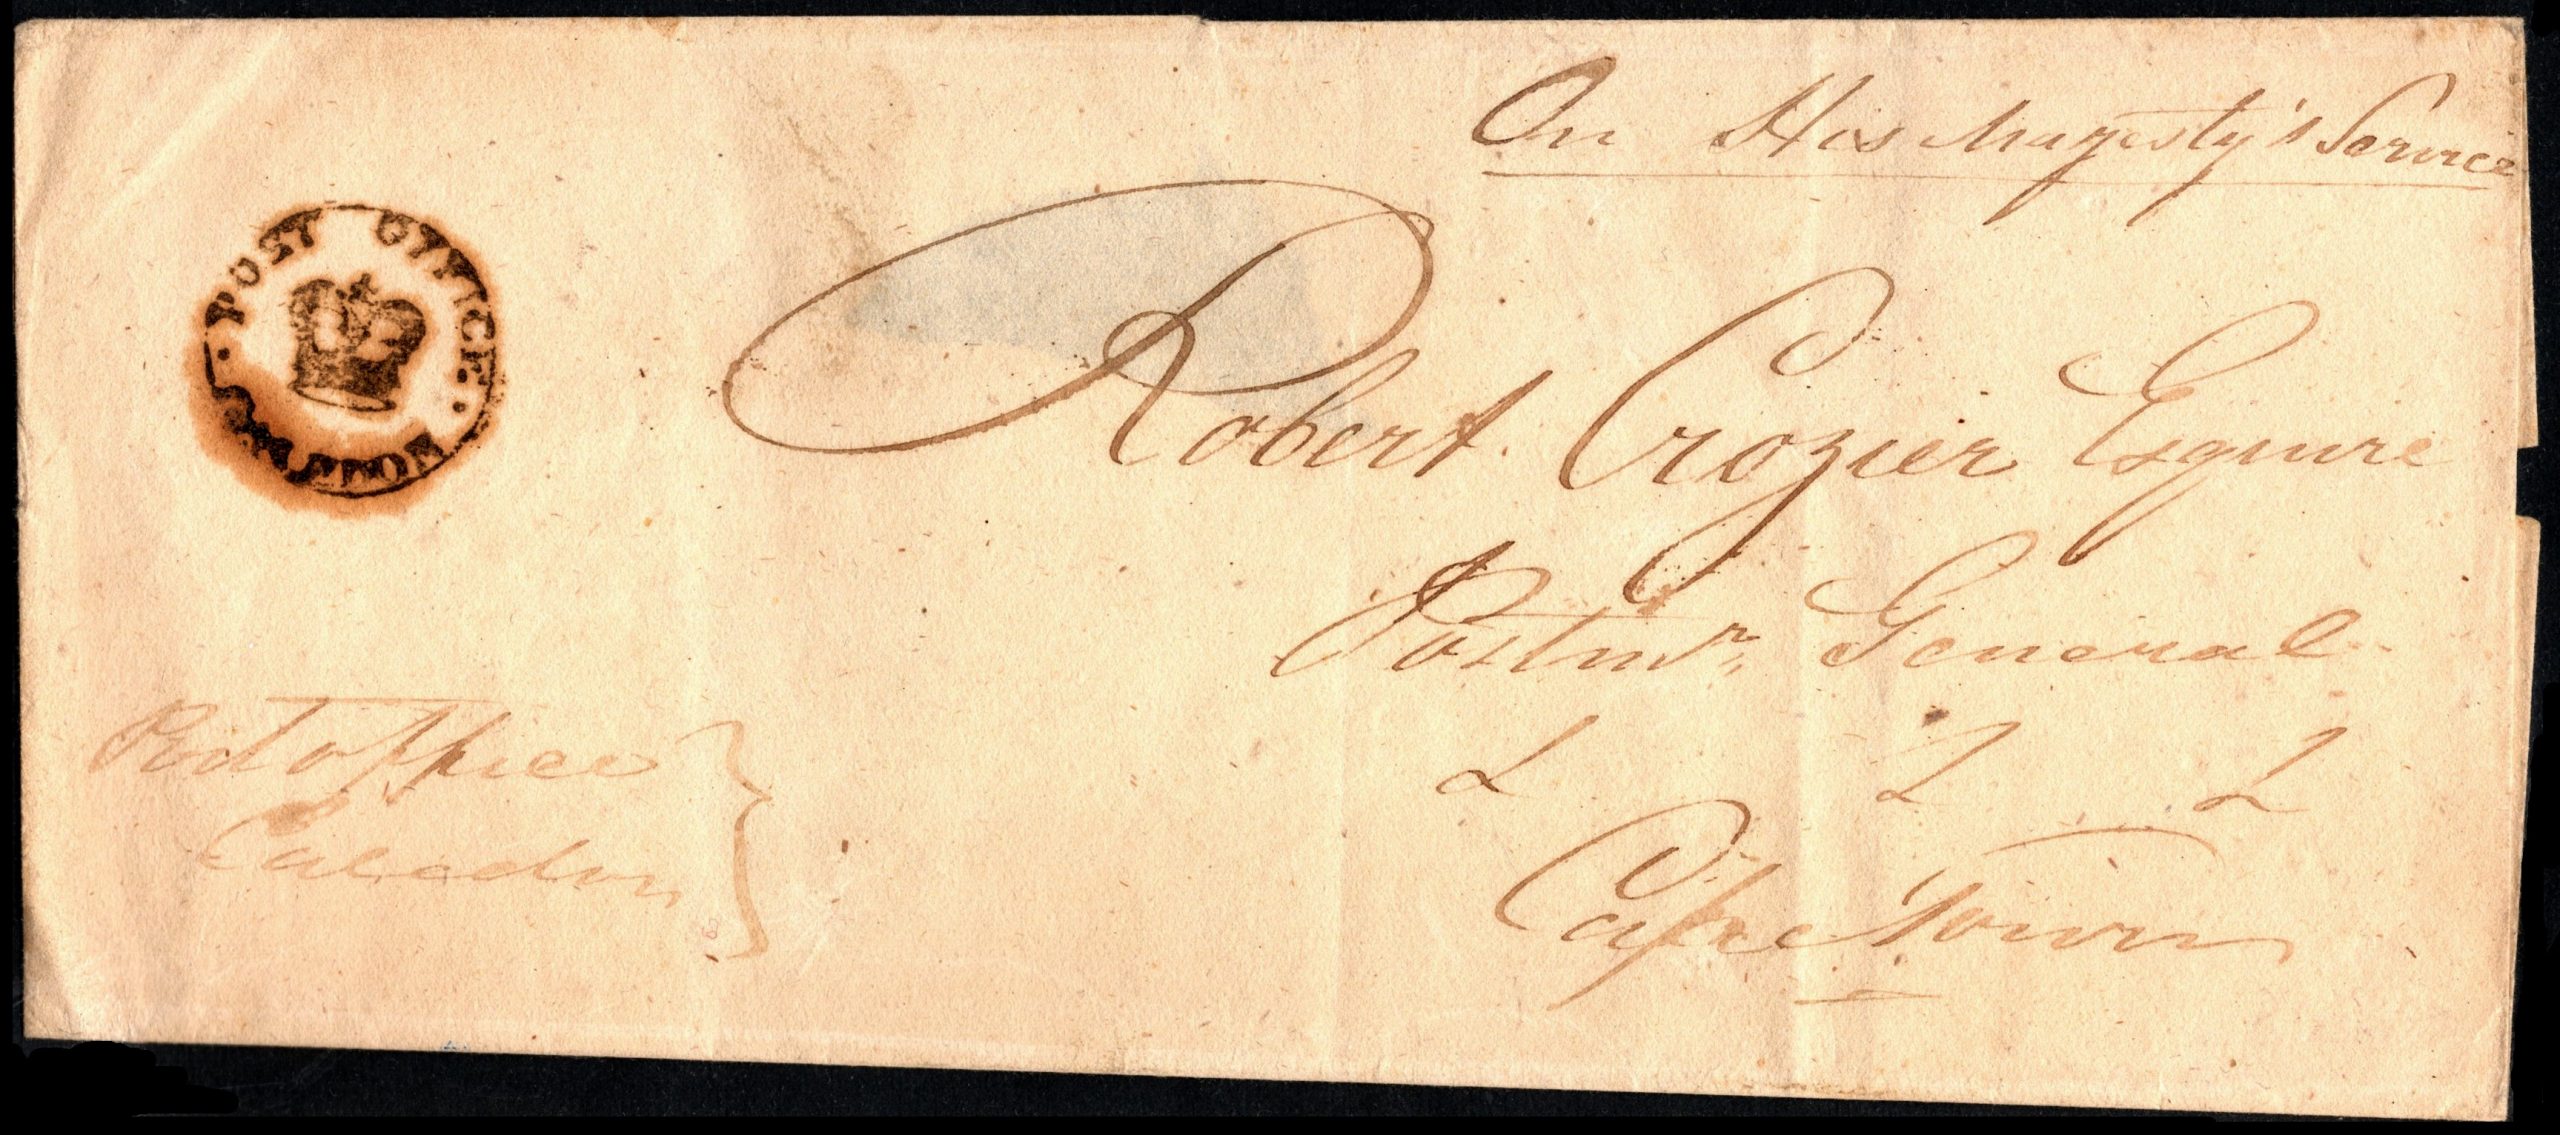 On His Majesty's Service
POST OFFICE
CALEDON
Robert Crozier Esquire
Postmr. General
& & &
Cape Town
Post Office
Caledon